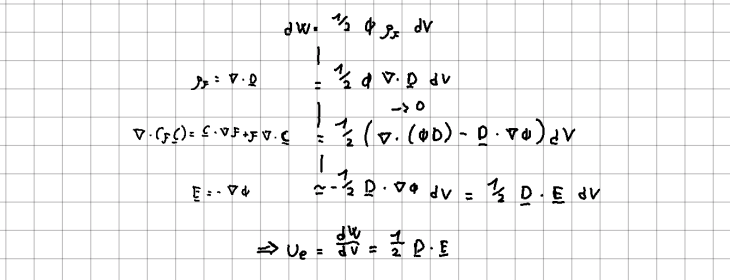 dW = ½ ϕ ρ_F dV
ρ_F = ∇·D̲ = ½ ϕ ∇·D̲ dV
→ 0
∇·(FC̲) = C̲·∇F + F∇·C̲ = ½ (∇·(ϕD) − D̲·∇ϕ) dV
E̲ = −∇ϕ ≃ −½ D̲·∇ϕ dV = ½ D̲·E̲ dV
⇒ U_e = dW/dV = ½ D̲·E̲